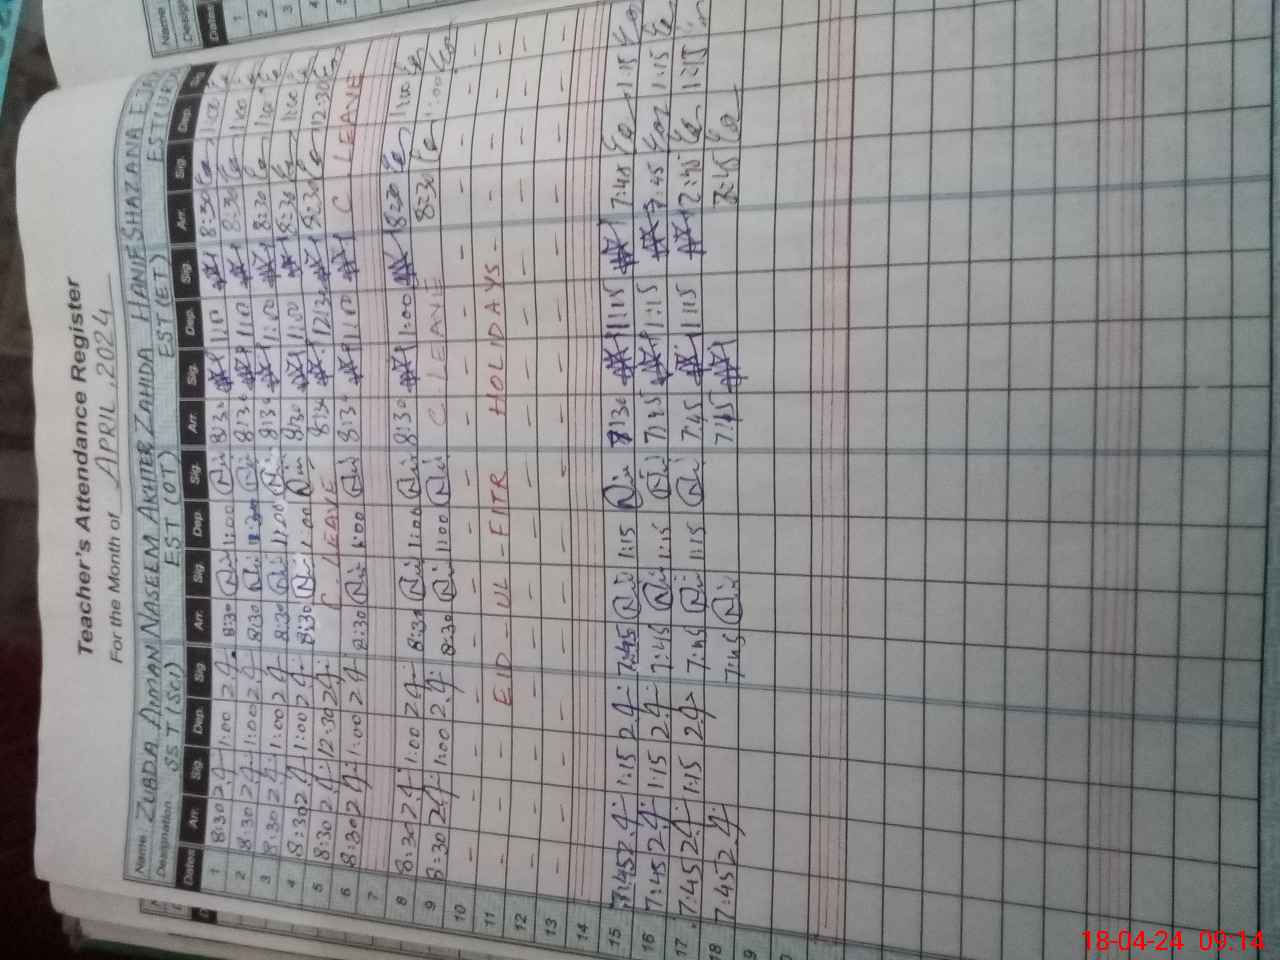 Teacher's Attendance Register
For the Month of APRIL, 2024
Name ZUBDA AMAN NASEEM AKHTER ZAHIDA HANIF SHAZANA
Designation SST (Sci) EST (OT) EST (ET) EST (URD
Dates Arr. Sig. Dep. Sig. Arr. Sig. Dep. Sig. Arr. Sig. Dep. Sig. Arr. Sig. Dep. Sig.
1 8:30 1:00 8:30 1:00 8:30 1:00 8:30 1:00
2 8:30 1:00 8:30 8:30 1:00 8:30 1:00
3 8:30 1:00 8:30 1:00 8:30 1:00 8:30 1:00
4 8:30 1:00 8:30 1:00 8:30 1:00 8:30 1:00
5 8:30 12:30 C LEAVE 8:30 12:30 8:30 12:30
6 8:30 1:00 8:30 1:00 8:30 1:00 C LEAVE
7
8 8:30 1:00 8:30 1:00 8:30 1:00 8:30 1:00
9 8:30 1:00 8:30 1:00 C LEAVE 8:30 1:00
10
11 EID - UL - FITR HOLIDAYS
12
13
14
15 7:45 1:15 7:45 1:15 8:30 1:15 7:45 1:15
16 7:45 1:15 7:45 1:15 7:45 1:15 7:45 1:15
17 7:45 1:15 7:45 1:15 7:45 1:15 7:45 1:15
18 7:45 7:45 7:45 7:45
18-04-24 09:14